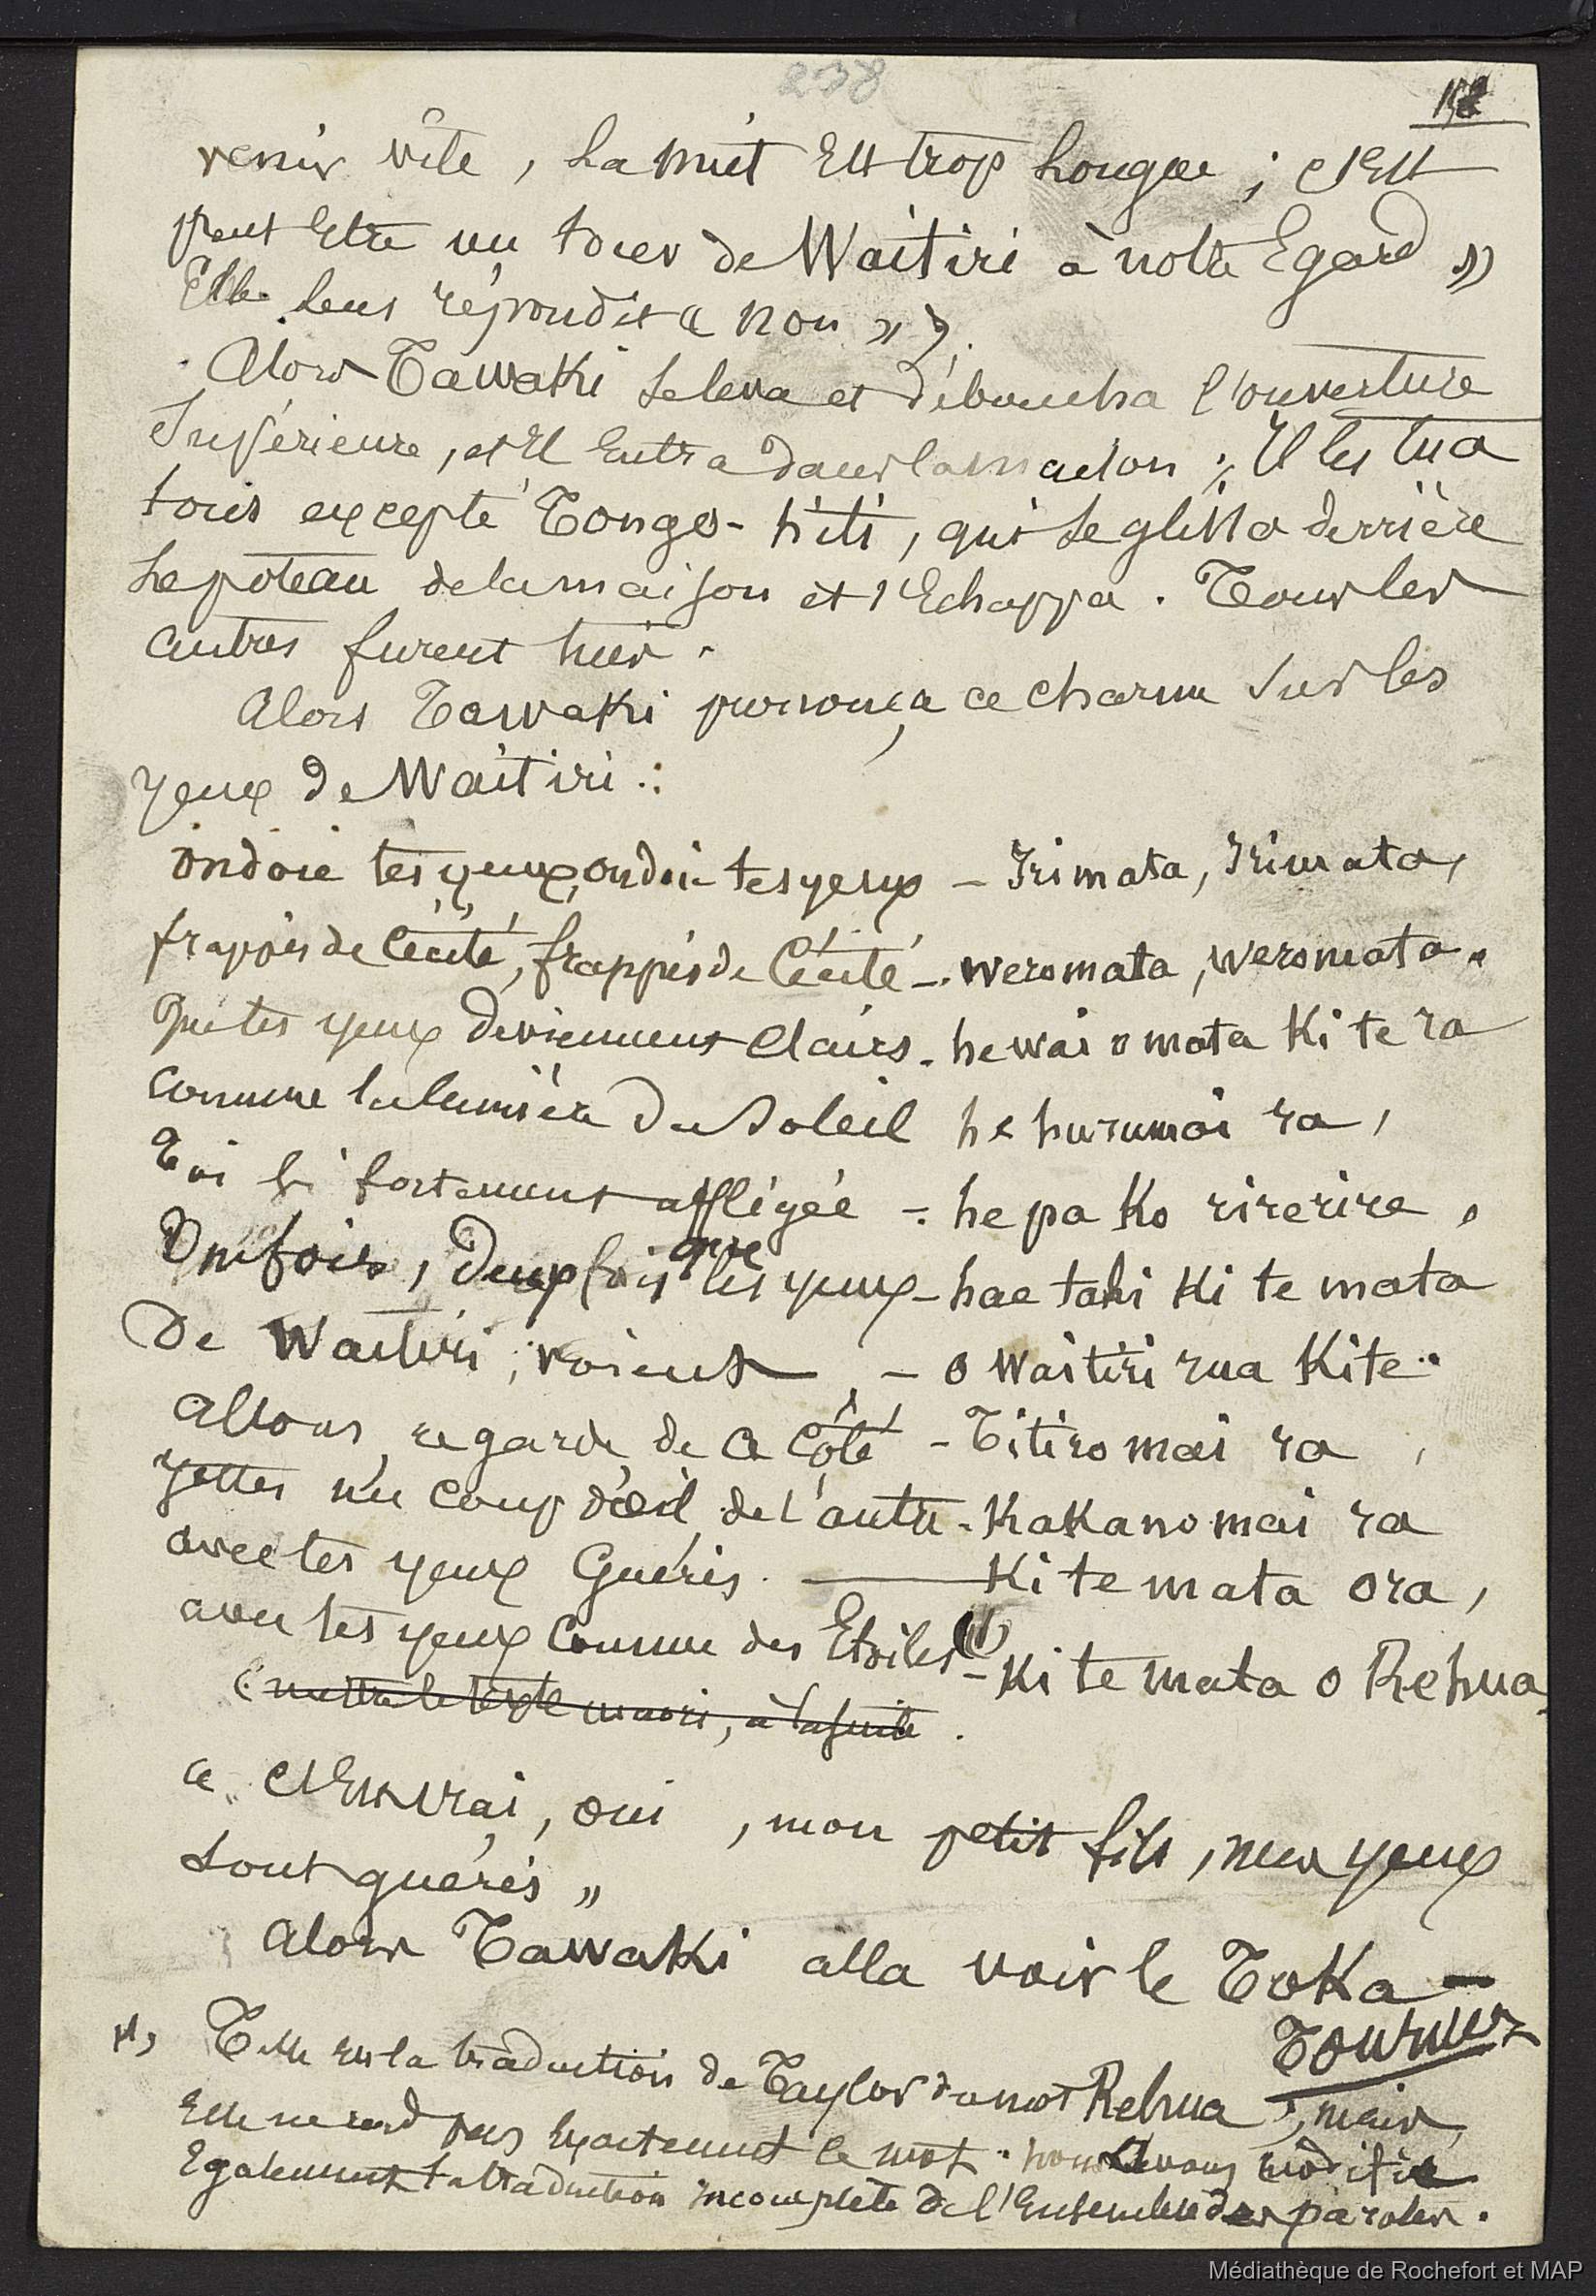 238
venir vite, la nuit Est trop longue ; c'Est
peut Etre un tour de Waitiri à notre Egard »
Elle leur répondit « non » ;
Alors Tawaki se leva et déboucha l'ouverture
Supérieure, et Il Entra dans la maison ; Il les tua
tous excepté Tongo-hiti, qui se glissa derrière
le poteau de la maison et s'Echappa. Tous les
autres furent tués.
Alors Tawaki prononça ce charme sur les
yeux de Waitiri :
ondoie tes yeux, ondoie tes yeux - Irimata, Irimata,
frappés de Cécité, frappés de Cécité - weromata, weromata.
que tes yeux deviennent Clairs - he wai o mata Ki te ra
comme la lumière du Soleil he hurumai ra,
Toi si fortement affligée - he pa Ko rirerire,
Une fois, deux fois que les yeux - hae tahi Ki te mata
De Waitiri, voient - o Waitiri rua Kite.
Allons, regarde de ce Côté - Titiro mai ra,
jettes un Coup d'œil de l'autre - Kakano mai ra
avec tes yeux Guéris. - Ki te mata ora,
avec tes yeux Comme des Etoiles (1) - Ki te mata o Rehua.
(mettre le texte maori, à la suite.
« C'Est vrai, oui, mon petit fils, mes yeux
sont guéris »
Alors Tawaki alla voir le Toka -
Tourner
(1) Telle est la traduction de Taylor du mot Rehua, mais
Elle ne rend pas Exactement le mot. nous avons modifié
Egalement la traduction incomplète de l'Ensemble des paroles.
Médiathèque de Rochefort et MAP